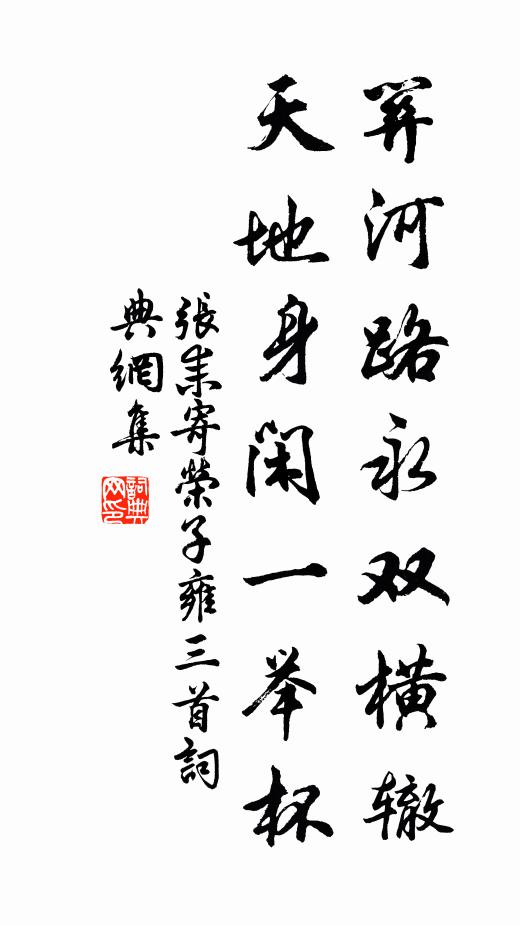 关河路永双横辙
天地身闲一举杯
張耒寄榮子雍三首詞
典網集
詞典网印